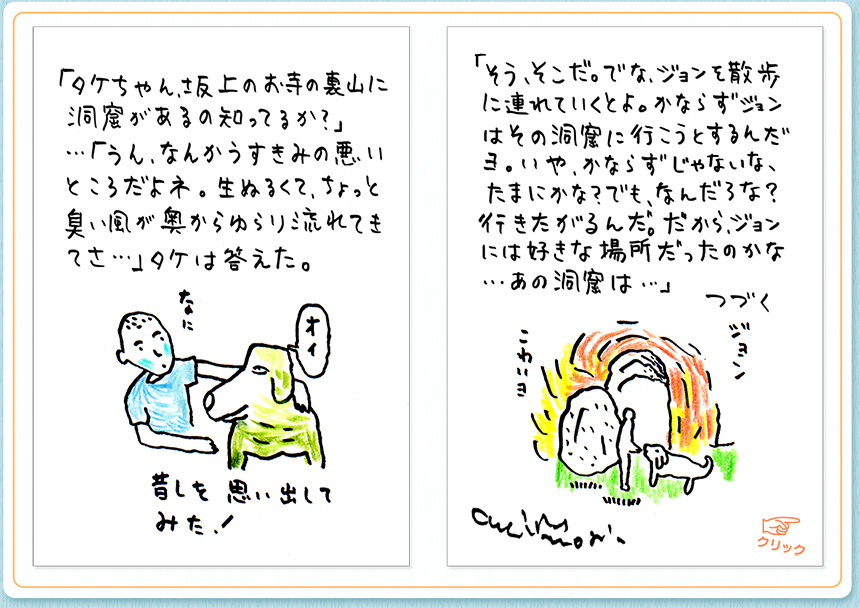 「タケちゃん、坂上のお寺の裏山に
洞窟があるの知ってるか？」
…「うん、なんかうすきみの悪い
ところだよネ。生ぬるくて、ちょっと
臭い風が奥からゆらり流れてき
てさ…」タケは答えた。
なに
オィ
昔しを思い出して
みた！
「そう、そこだ。でな、ジョンを散歩
に連れていくとよ。かならずジョン
はその洞窟に行こうとするんだ
ヨ。いや、かならずじゃないな、
たまにかな？でも、なんだろな？
行きたがるんだ。だから、ジョン
には好きな場所だったのかな
…あの洞窟は…」
つづく
ジョン
こわいヨ
クリック